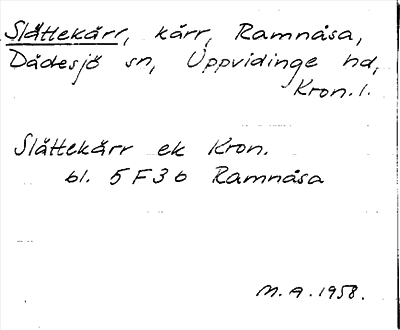 Slåttekärr, kärr, Ramnåsa,
Dädesjö sn, Uppvidinge hd,
Kron. l.
Slåttekärr ek Kron.
bl. 5 F 3 b Ramnåsa
M. A. 1958.